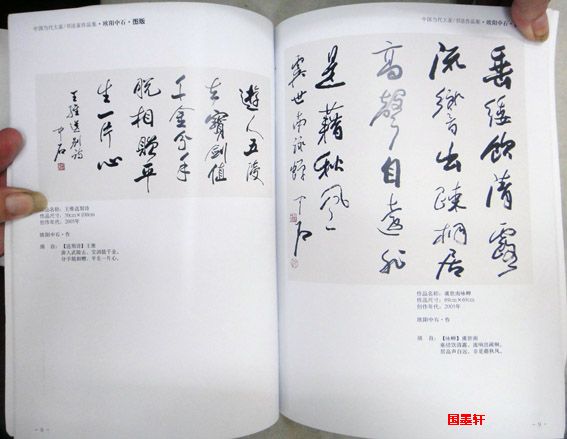 中国当代大家/书法家作品集·欧阳中石·图版
遊人五陵
去寶劍值
千金分手
脱相贈平
生一片心
王維送別詩
中石
作品名称：王维送别诗
作品尺寸：70cm×100cm
创作年代：2005年
欧阳中石·作
摘 自：【送别诗】王维
游人武陵去，宝剑值千金。
分手脱相赠，平生一片心。
- 8 -
中国当代大家/书法家作品集·欧阳中石·
垂緌飲清露
流響出疎桐居
高聲自遠非
是藉秋風
虞世南詠蟬
中石
作品名称：虞世南咏蝉
作品尺寸：69cm×69cm
创作年代：2005年
欧阳中石·作
摘 自：【咏蝉】虞世南
垂緌饮清露，流响出疏桐。
居高声自远，非是藉秋风。
- 9 -
国墨轩